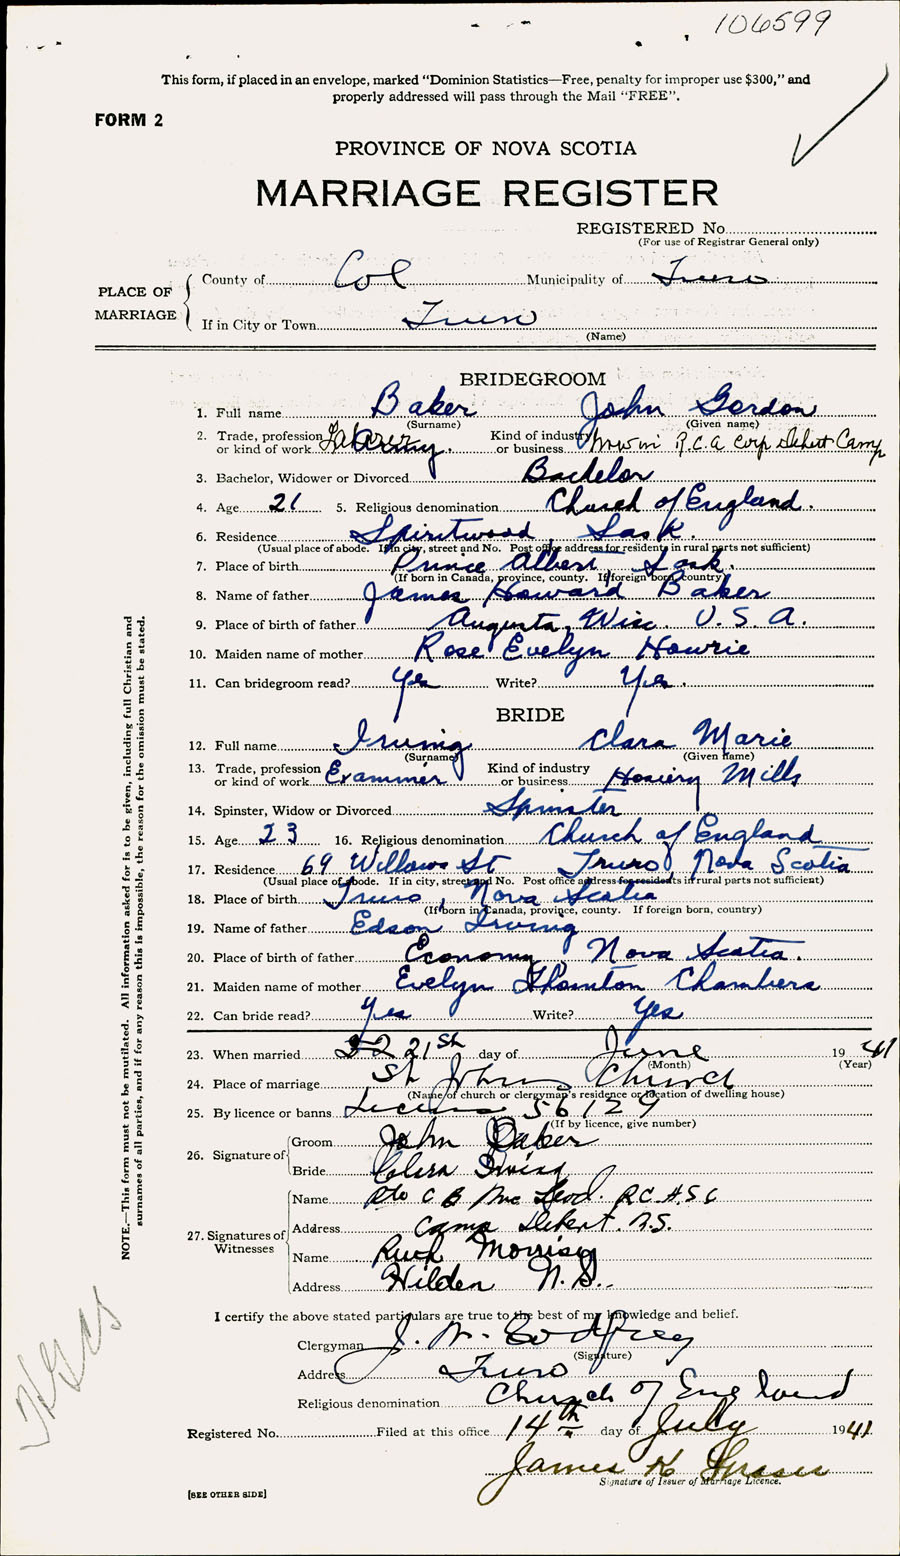 106599
This form, if placed in an envelope, marked "Dominion Statistics—Free, penalty for improper use $300," and
properly addressed will pass through the Mail "FREE".
FORM 2
PROVINCE OF NOVA SCOTIA
MARRIAGE REGISTER
REGISTERED No.
(For use of Registrar General only)
PLACE OF MARRIAGE
County of Col Municipality of Truro
If in City or Town Truro
(Name)
BRIDEGROOM
1. Full name Baker John Gordon
(Surname) (Given name)
2. Trade, profession or kind of work Laborer Army. Kind of industry or business R.C.A Corp Debert Camp
3. Bachelor, Widower or Divorced Bachelor
4. Age 21 5. Religious denomination Church of England.
6. Residence Spiritwood Sask.
(Usual place of abode. If in city, street and No. Post office address for residents in rural parts not sufficient)
7. Place of birth Prince Albert, Sask.
(If born in Canada, province, county. If foreign born, country)
8. Name of father James Howard Baker
9. Place of birth of father Augusta, Wisc. U.S.A.
10. Maiden name of mother Rose Evelyn Howrie
11. Can bridegroom read? Yes Write? Yes.
BRIDE
12. Full name Irving Clara Marie
(Surname) (Given name)
13. Trade, profession or kind of work Examiner Kind of industry or business Hosiery Mills
14. Spinster, Widow or Divorced Spinster
15. Age 23 16. Religious denomination Church of England
17. Residence 69 Willows St Truro, Nova Scotia
(Usual place of abode. If in city, street and No. Post office address for residents in rural parts not sufficient)
18. Place of birth Truro, Nova Scotia
(If born in Canada, province, county. If foreign born, country)
19. Name of father Edson Irving
20. Place of birth of father Economy, Nova Scotia.
21. Maiden name of mother Evelyn Thornton Chambers
22. Can bride read? Yes Write? Yes
23. When married 22 21st day of June 1941
(Month) (Year)
24. Place of marriage St Johns Church
(Name of church or clergyman's residence or location of dwelling house)
25. By licence or banns License 56129
(If by licence, give number)
26. Signature of
Groom John Baker
Bride Clara Irving
27. Signatures of Witnesses
Name Pte C B McLeod. R.C.A.S.C
Address Camp Debert. N.S.
Name Ruth Morrisey
Address Hilden N.S.
I certify the above stated particulars are true to the best of my knowledge and belief.
Clergyman J. W. Godfrey
(Signature)
Address Truro
Religious denomination Church of England
Registered No. Filed at this office 14th day of July 1941
James K
Signature of Issuer of Marriage Licence.
[SEE OTHER SIDE]
NOTE.—This form must not be mutilated. All information asked for is to be given, including full Christian and
surnames of all parties, and if for any reason this is impossible, the reason for the omission must be stated.